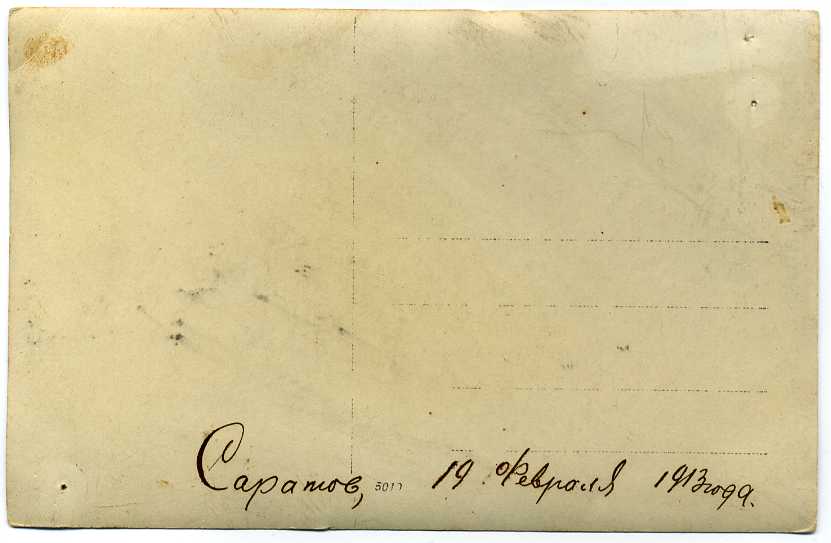 Саратов, 5017 19 Февраля 1913 года.